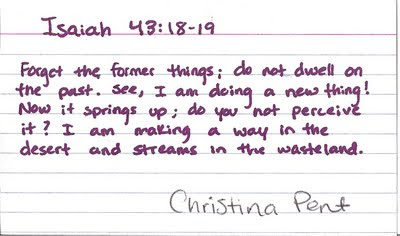 Isaiah 43:18-19
Forget the former things; do not dwell on
the past. See, I am doing a new thing!
Now it springs up; do you not perceive
it? I am making a way in the
desert and streams in the wasteland.
Christina Pent